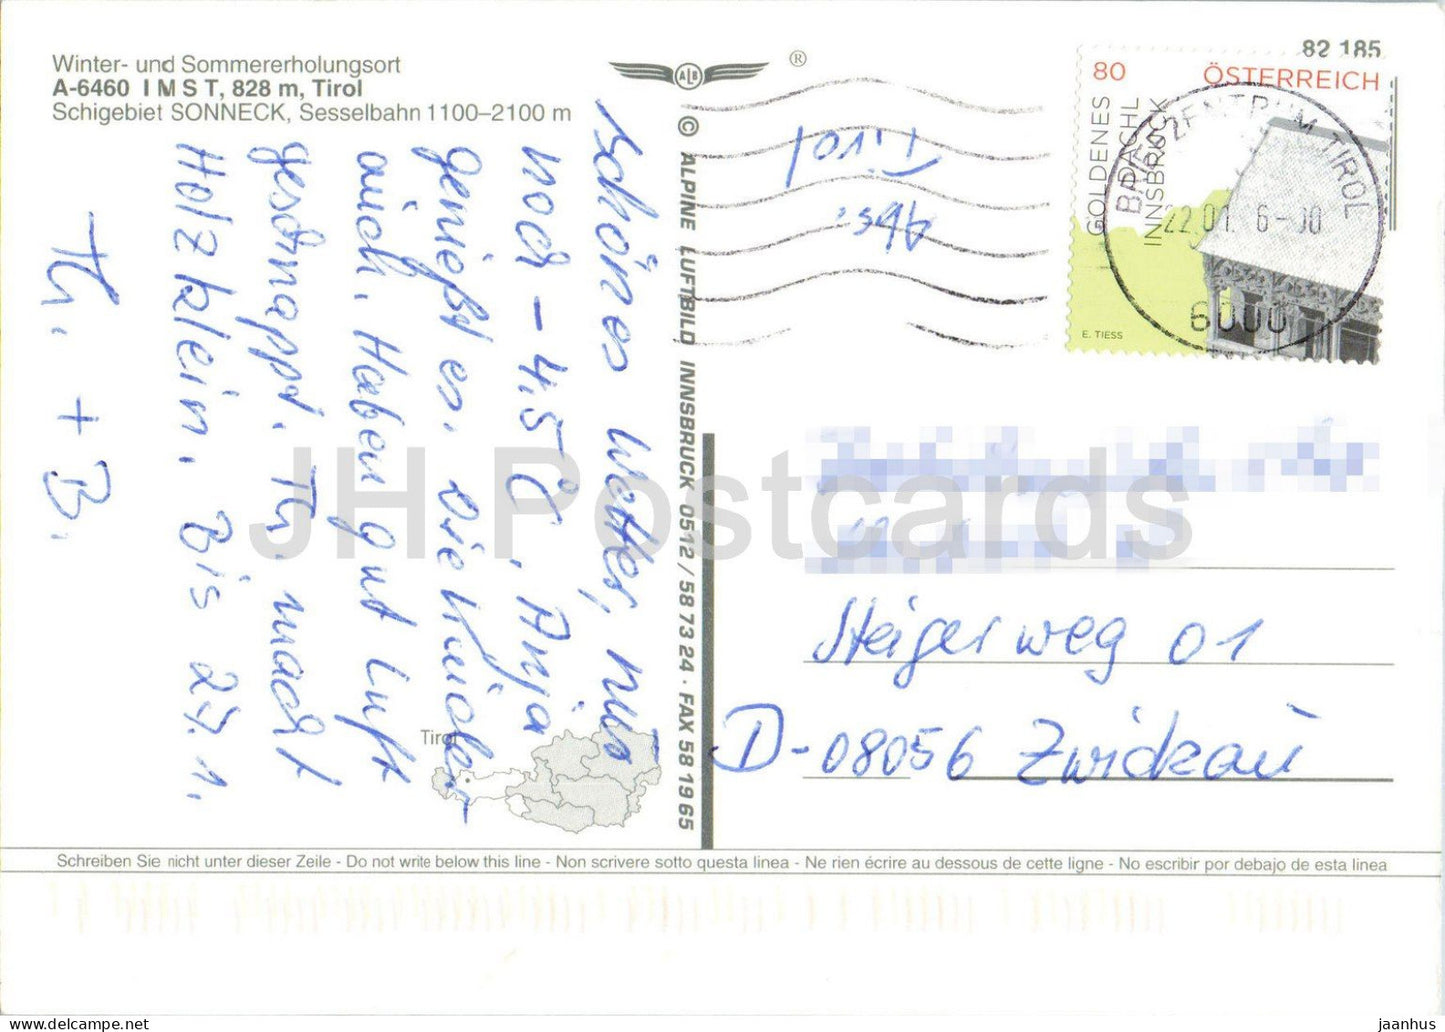 Winter- und Sommererholungsort
A-6460 IMST, 828 m, Tirol
Schigebiet SONNECK, Sesselbahn 1100–2100 m
ALB
®
82 185
80 ÖSTERREICH
GOLDENES
DACHL
INNSBRUCK
E. TIESS
BRIEFZENTRUM TIROL
22.01. 6-00
6000
Abs.
Tirol
schönes Wetter, nur
noch - 4,5°C, Anja
genießt es. Die Kinder
auch. Haben gut Luft
geschnappt. Th. macht
Holz klein. Bis 27.1.
Th. + B.
© ALPINE LUFTBILD INNSBRUCK 0512/587324 · FAX 581965
Steigerweg 01
D-08056 Zwickau
Tirol
JH Postcards
Schreiben Sie nicht unter dieser Zeile - Do not write below this line - Non scrivere sotto questa linea - Ne rien écrire au dessous de cette ligne - No escribir por debajo de esta linea
jaanhus
www.delcampe.net